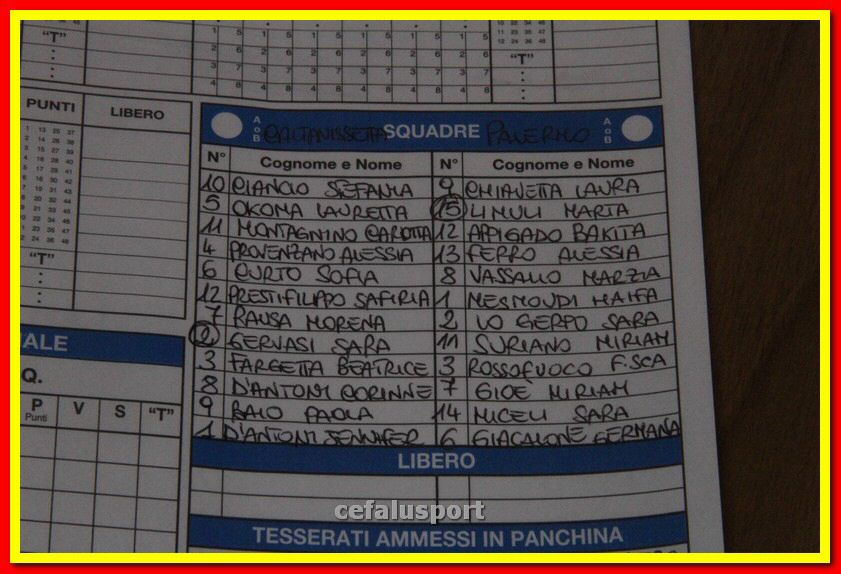 "T"
1 5 1 5 1 5 1 5
2 6 2 6 2 6 2 6
3 7 3 7 3 7 3 7
4 8 4 8 4 8 4 8
"T"
PUNTI LIBERO
"T"
A o B CALTANISSETTA SQUADRE PALERMO A o B
N° Cognome e Nome N° Cognome e Nome
10 CIANCIO STEFANIA 9 CHIAVETTA LAURA
5 OKOMA LAURETTA 15 LIMULI MARTA
11 MONTAGNINO CARLOTTA 12 APPIGADO BAKITA
4 PROVENZANO ALESSIA 13 FERRO ALESSIA
6 CURTO SOFIA 8 VASSALLO MARZIA
12 PRESTIFILIPPO SAFIRIA 1 MESMOUDI HAIFA
7 RAUSA MORENA 2 LO GERFO SARA
2 GERVASI SARA 11 SURIANO MIRIAM
3 FARGETTA BEATRICE 3 ROSSOFUOCO F.SCA
8 D'ANTONI CORINNE 7 GIOÈ MIRIAM
9 BAIO PAOLA 14 MICELI SARA
1 D'ANTONI JENNIFER 6 GIACALONE GERMANA
LIBERO
TESSERATI AMMESSI IN PANCHINA
ALE
Q.
P Punti V S "T"
cefalusport